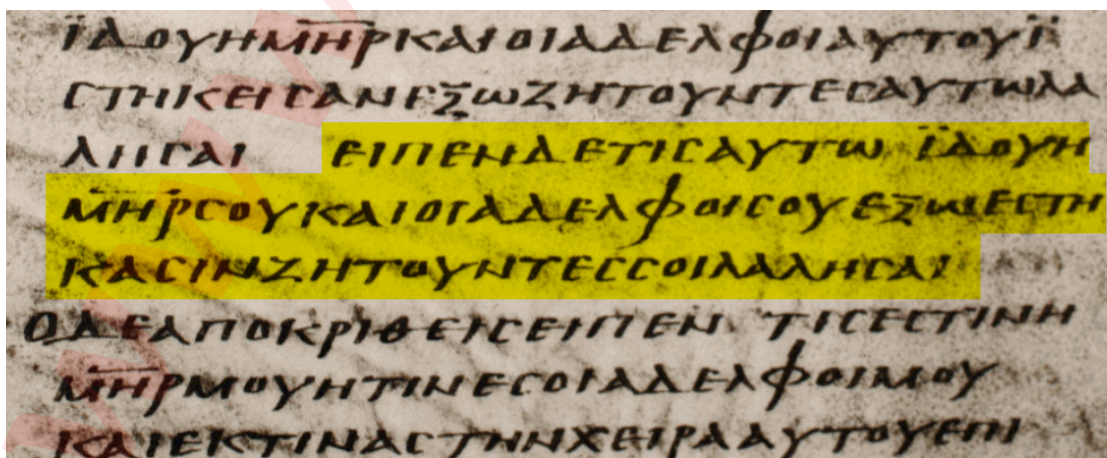 ΪΔΟΥΗΜ̅Η̅Ρ̅ΚΑΙΟΙΑΔΕΛΦΟΙΑΥΤΟΥΪ
ϹΤΗΚΕΙϹΑΝΕΞΩΖΗΤΟΥΝΤΕϹΑΥΤΩΛΑ
ΛΗϹΑΙ ΕΙΠΕΝΔΕΤΙϹΑΥΤΩ ΪΔΟΥΗ
Μ̅Η̅Ρ̅ϹΟΥΚΑΙΟΙΑΔΕΛΦΟΙϹΟΥΕΞΩΕϹΤΗ
ΚΑϹΙΝΖΗΤΟΥΝΤΕϹϹΟΙΛΑΛΗϹΑΙ
ΟΔΕΑΠΟΚΡΙΘΕΙϹΕΙΠΕΝ ΤΙϹΕϹΤΙΝΗ
Μ̅Η̅Ρ̅ΜΟΥΗΤΙΝΕϹΟΙΑΔΕΛΦΟΙΜΟΥ
ΚΑΙΕΚΤΙΝΑϹΤΗΝΧΕΙΡΑΑΥΤΟΥΕΠΙ